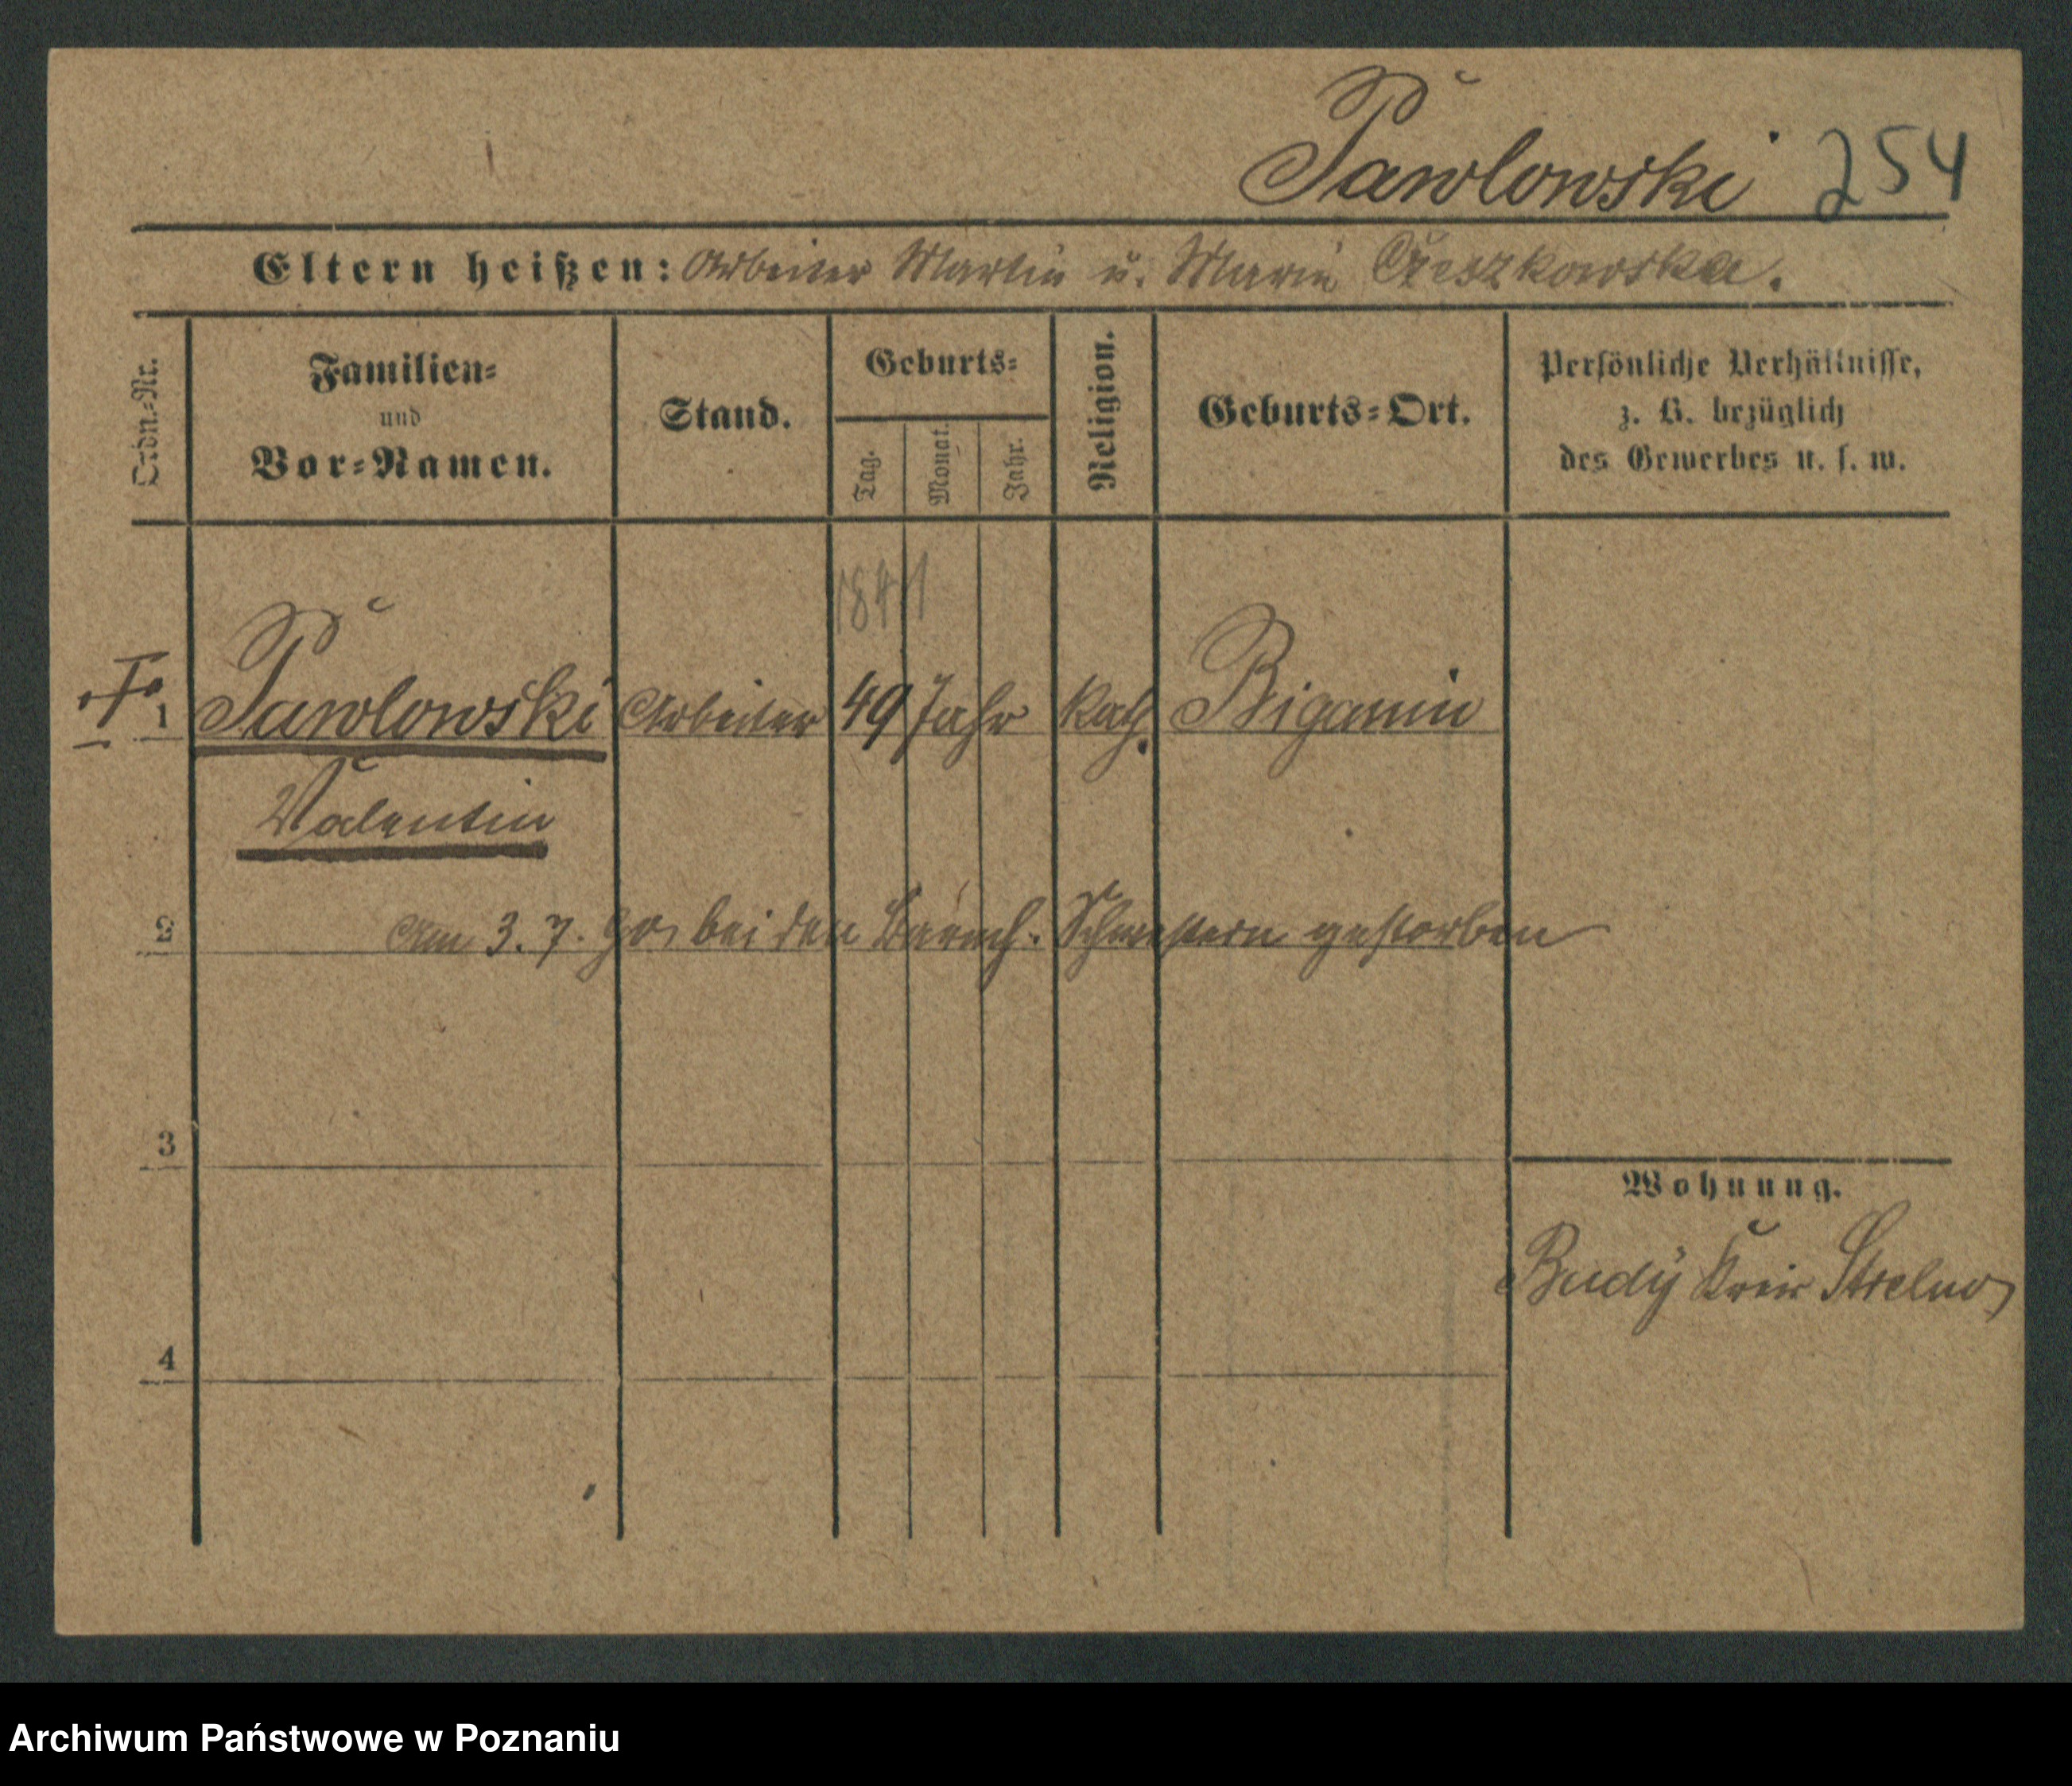 Pawlowski 254
Eltern heißen: Arbeiter Martin u. Marie
Ordn.-Nr.
Familien-
und
Vor-Namen.
Stand.
Geburts-
Tag.
Monat.
Jahr.
Religion.
Geburts-Ort.
Persönliche Verhältnisse,
z. B. bezüglich
des Gewerbes u. s. w.
1841
1 Pawlowski Arbeiter 49 Jahr Kath.
Valentin
2 Am 3. 7. 90 bei den Barmh. Schwestern gestorben
3
Wohnung.
Budy Kreis Strelno
4
Archiwum Państwowe w Poznaniu